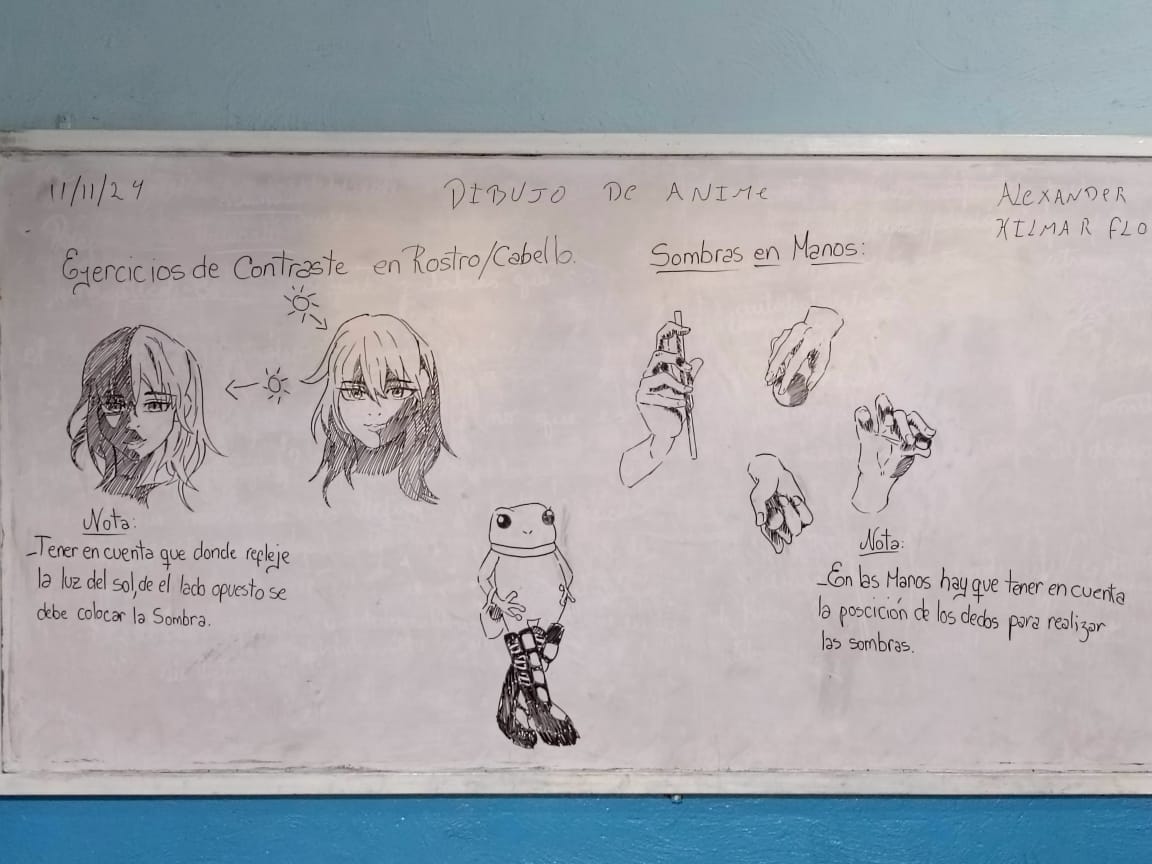 11/11/24
DIBUJO DE ANIME
ALEXANDER
HILMAR FLO
Ejercicios de Contraste en Rostro/Cabello.
Sombras en Manos:
Nota:
-Tener en cuenta que donde refleje
la luz del sol, de el lado opuesto se
debe colocar la Sombra.
Nota:
-En las Manos hay que tener en cuenta
la poscición de los dedos para realizar
las sombras.